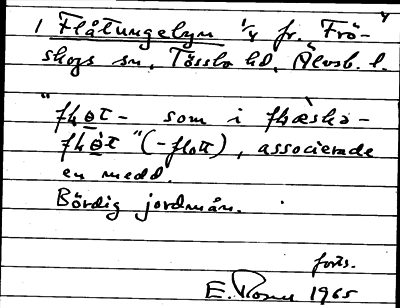 1 Flåtungebyn 1/4 fr. Frö-
skogs sn, Tössbo hd, Älvsb. l.
"fḷo̲t- som i fḷæ̀skə-
fḷò̲t" (-flott), associerade
en medd.
Bördig jordmån.
forts.
E. 1965